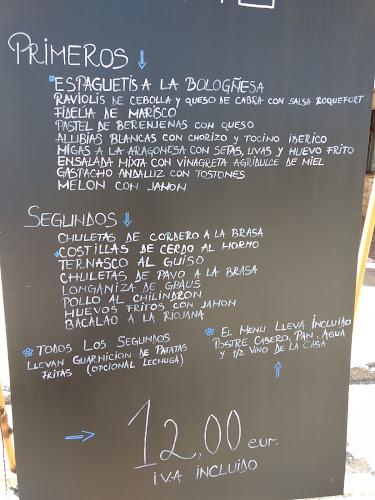 PRIMEROS
ESPAGUETIS A LA BOLOGÑESA
RAVIOLIS DE CEBOLLA Y QUESO DE CABRA CON SALSA ROQUEFORT
FIDEUA DE MARISCO
PASTEL DE BERENJENAS CON QUESO
ALUBIAS BLANCAS CON CHORIZO Y TOCINO IBERICO
MIGAS A LA ARAGONESA CON SETAS, UVAS Y HUEVO FRITO
ENSALADA MIXTA CON VINAGRETA AGRIDULCE DE MIEL
GASPACHO ANDALUZ CON TOSTONES
MELON CON JAMON
SEGUNDOS
CHULETAS DE CORDERO A LA BRASA
COSTILLAS DE CERDO AL HORNO
TERNASCO AL GUISO
CHULETAS DE PAVO A LA BRASA
LONGANIZA DE GRAUS
POLLO AL CHILINDRON
HUEVOS FRITOS CON JAMON
BACALAO A LA RIOJANA
* TODOS LOS SEGUNDOS
LLEVAN GUARNICION DE PATATAS
FRITAS (OPCIONAL LECHUGA)
* EL MENU LLEVA INCLUIDO
POSTRE CASERO, PAN, AGUA
Y 1/2 VINO DE LA CASA
12,00 eur.
I.V.A INCLUIDO